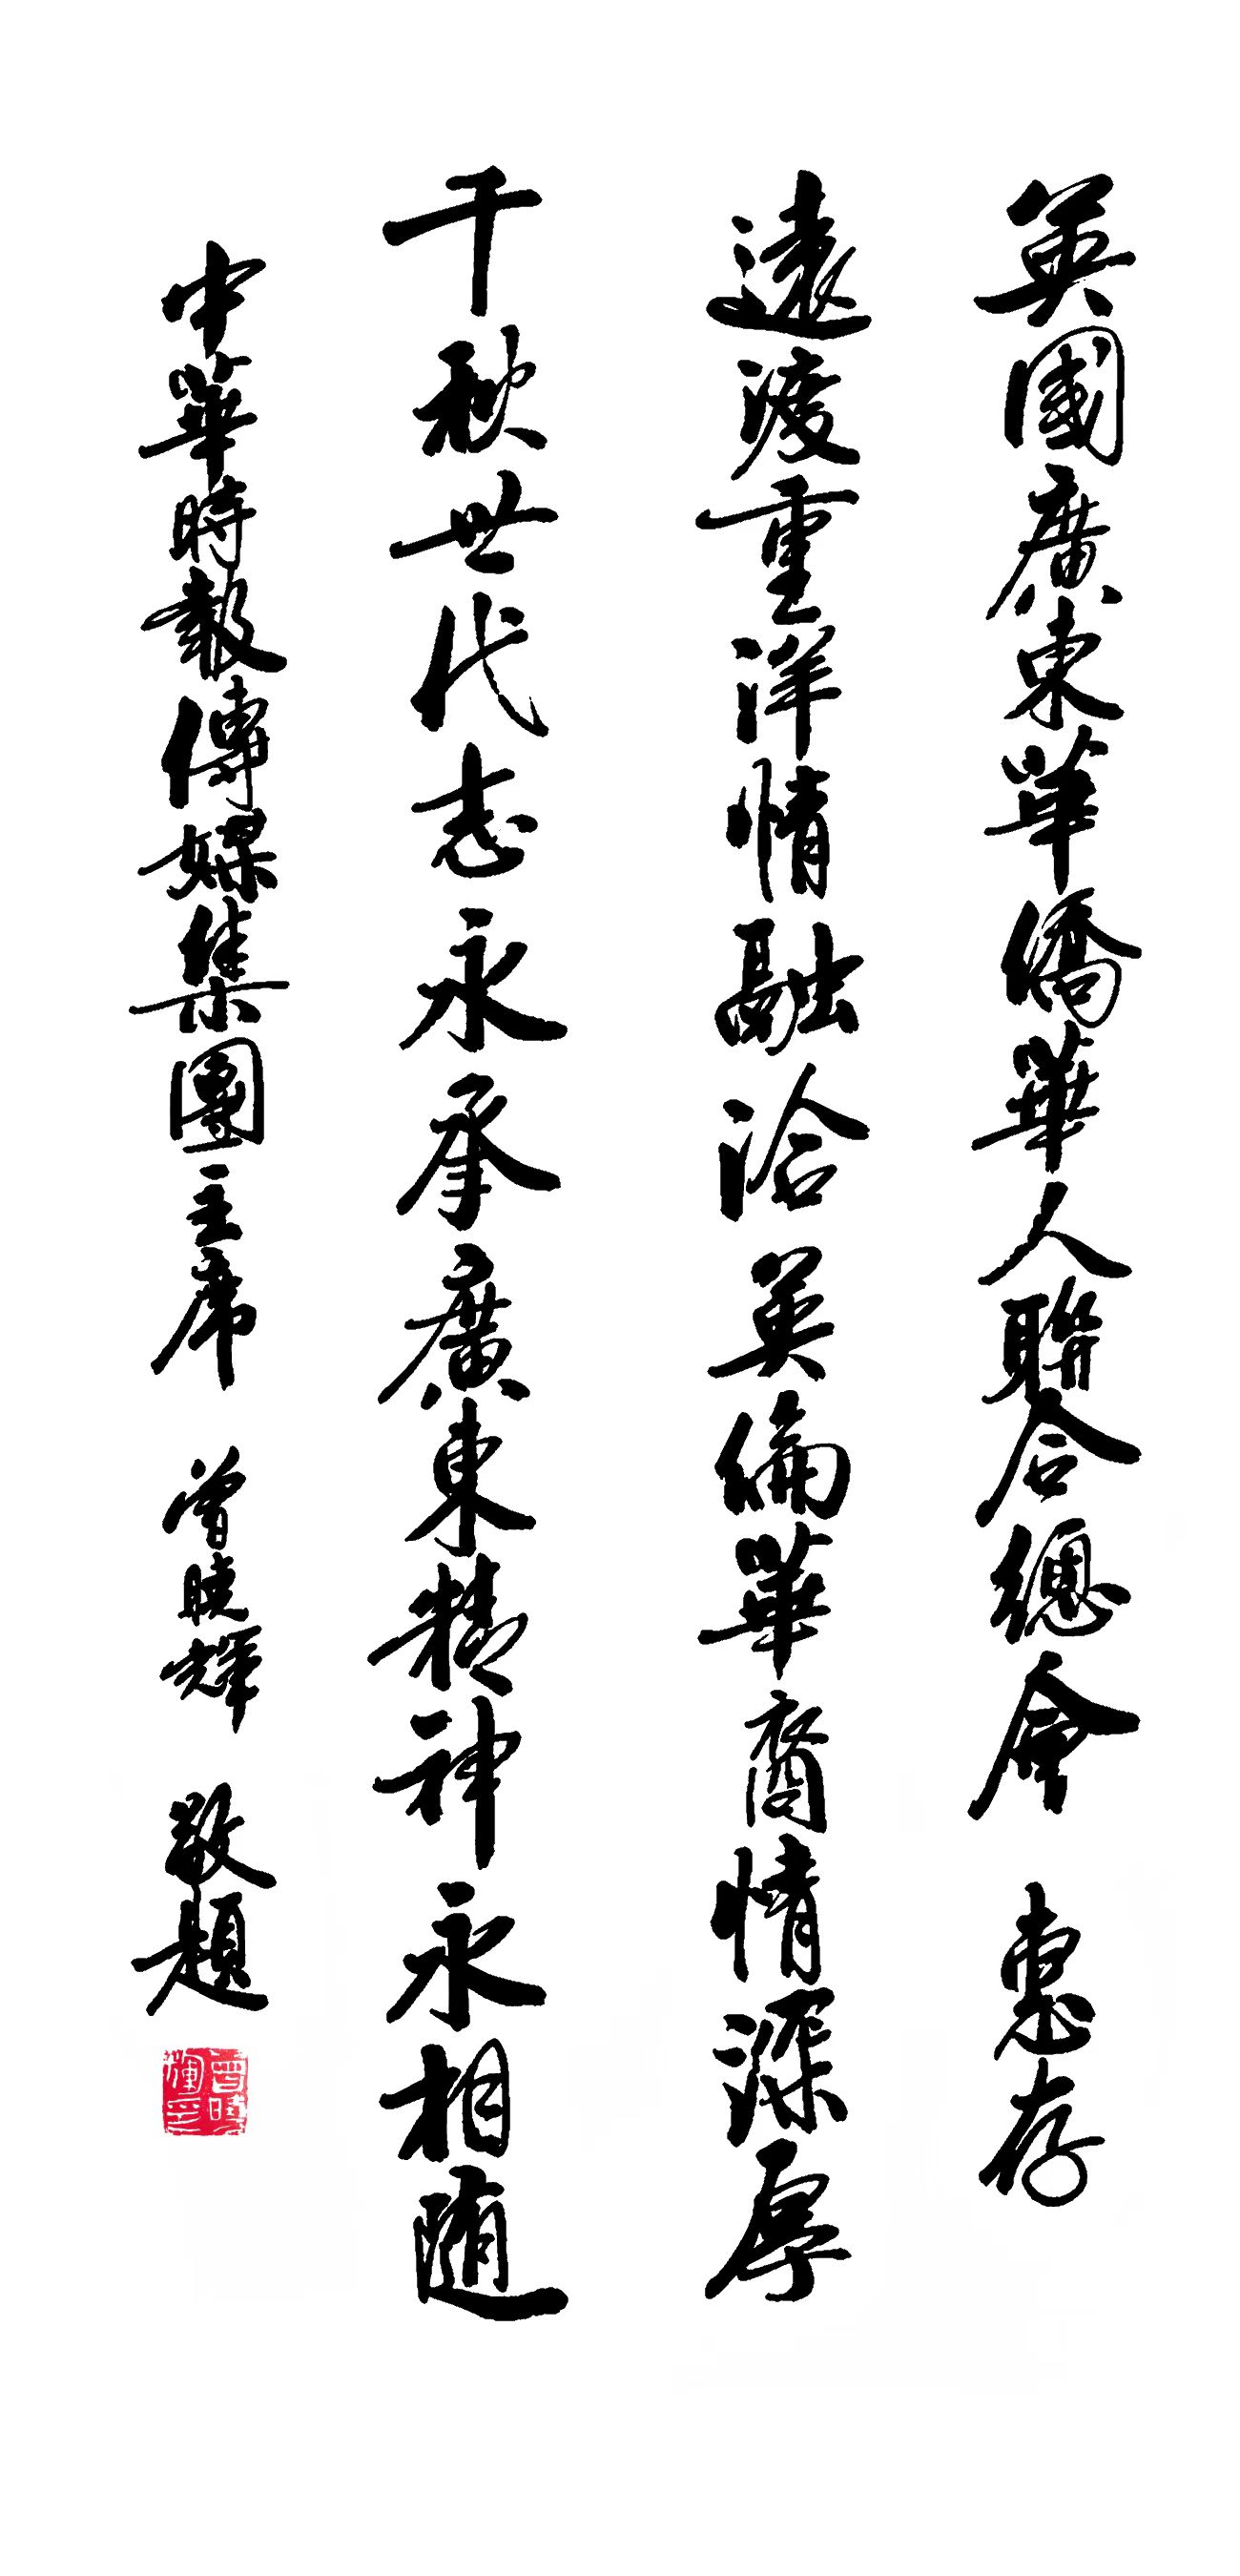 英國廣東華僑華人聯合總會 惠存
遠渡重洋情融洽英倫華裔情深厚
千秋世代志永承廣東精神永相随
中華時報傳媒集團主席 曾曉輝 敬題